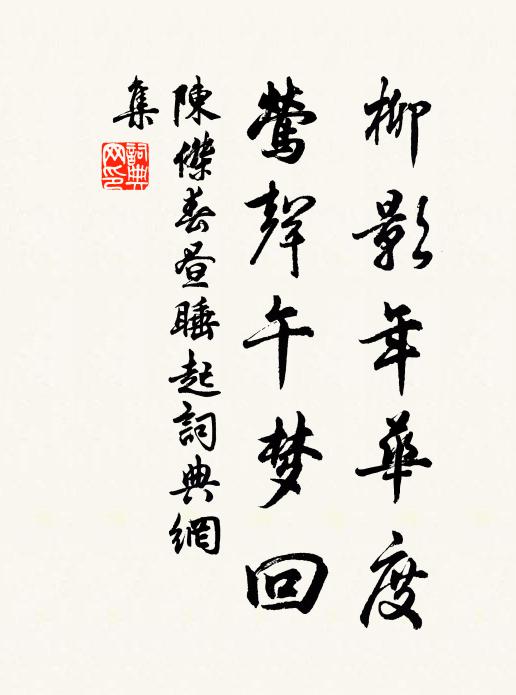 柳影年華度
鶯聲午梦回
陳傑春昼睡起詞典網
集
詞典
网印